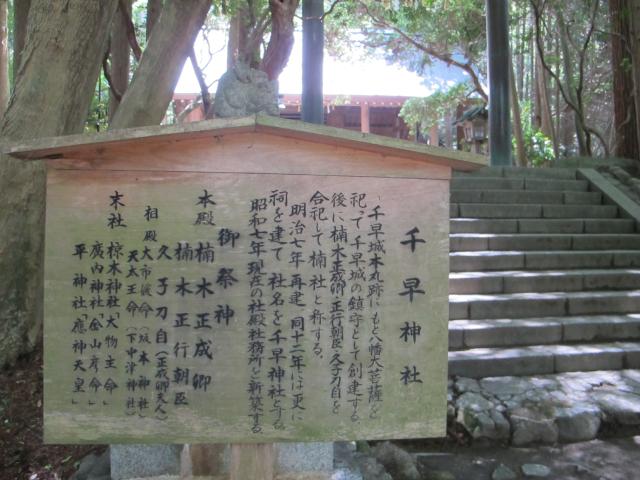 千早神社
千早城本丸跡にもと八幡大菩薩を
祀って千早城の鎮守として創建する
後に楠木正成卿、正行朝臣、久子刀自を
合祀して楠社と称する。
明治七年再建、同十二年には更に
祠を建て社名を千早神社とする
昭和七年現在の社殿社務所を新築する
御祭神
本殿 楠木正成卿
楠木正行朝臣
久子刀自(正成卿夫人)
相殿 大市彼命(坂本神社)
天太王命(下中津神社)
末社 椋木神社「大物主命」
廣内神社「金山彦命」
平神社「應神天皇」